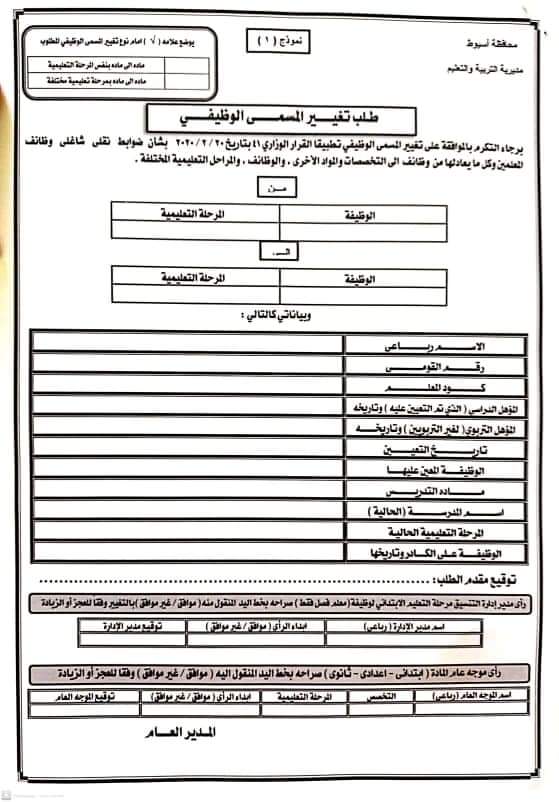 محافظة أسيوط
مديرية التربية والتعليم
نموذج ( ١ )
يوضع علامه ( √ ) امام نوع تغيير المسمى الوظيفي المطلوب
ماده الى ماده بنفس المرحلة التعليمية
ماده الى ماده بمرحلة تعليمية مختلفة
طلب تغيير المسمى الوظيفي
برجاء التكرم بالموافقة على تغيير المسمى الوظيفي تطبيقا القرار الوزاري ٤١ بتاريخ ٢٠ / ٢ / ٢٠٢٠ بشان ضوابط نقلى شاغلى وظائف
المعلمين وكل ما يعادلها من وظائف الى التخصصات والمواد الأخرى ، والوظائف ، والمراحل التعليمية المختلفة .
من
الوظيفة المرحلة التعليمية
الى
الوظيفة المرحلة التعليمية
وبياناتي كالتالي :
الاسم رباعى
رقم القومى
كود المعلم
المؤهل الدراسي ( الذي تم التعيين عليه ) وتاريخه
المؤهل التربوي( لغير التربويين ) وتاريخه
تاريخ التعيين
الوظيفة المعين عليها
ماده التدريس
اسم المدرسة (الحالية )
المرحلة التعليمية الحالية
الوظيفة على الكادر وتاريخها
توقيع مقدم الطلب: ........................................
رأى مدير إدارة التنسيق مرحلة التعليم الابتدائي لوظيفة (معلم فصل فقط ) صراحه بخط اليد المنقول منه ( موافق / غير موافق )بالتغيير وفقا للعجز أو الزيادة
اسم مدير الإدارة ( رباعى) ابداء الرأى ( موافق / غير موافق ) توقيع مدير الإدارة
رأى موجه عام المادة ( ابتدائى - اعدادى - ثانوى ) صراحه بخط اليد المنقول اليه ( موافق / غير موافق ) وفقا للعجز أو الزيادة
اسم الموجه العام (رباعى) التخصص المرحلة التعليمية ابداء الرأى ( موافق / غير موافق ) توقيع الموجه العام
المدير العام